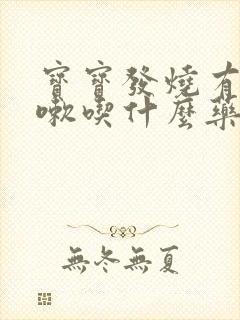 寶寶發燒有
嗽喫什麼藥
無冬無夏